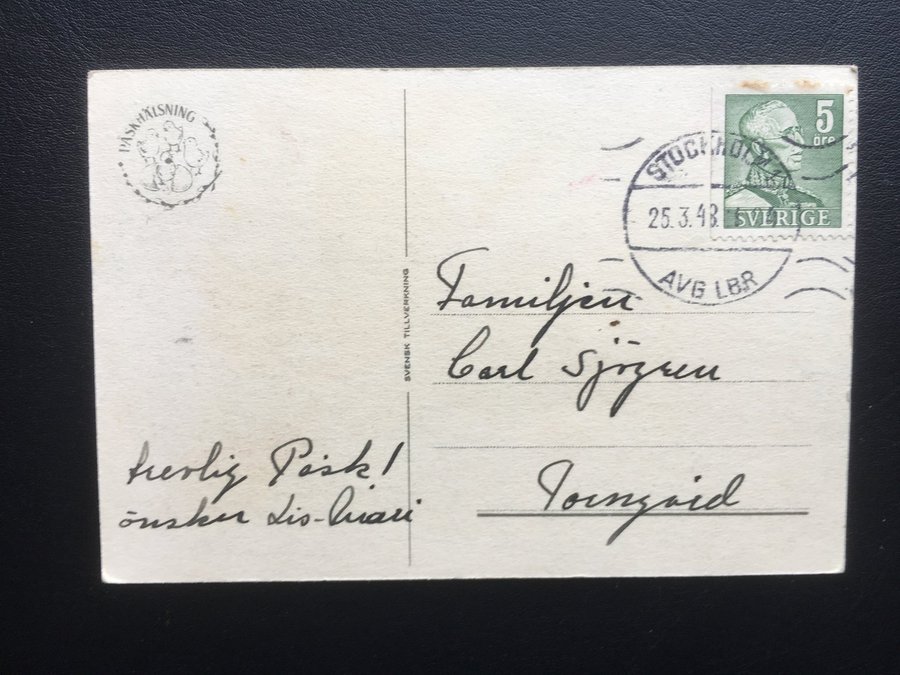 PÅSKHÄLSNING
5
öre
SVERIGE
STOCKHOLM
25.3.48.
AVG LBR
SVENSK TILLVERKNING
Familjen
Carl Sjögren
Torngård
trevlig Påsk!
önsker Lis-Mari